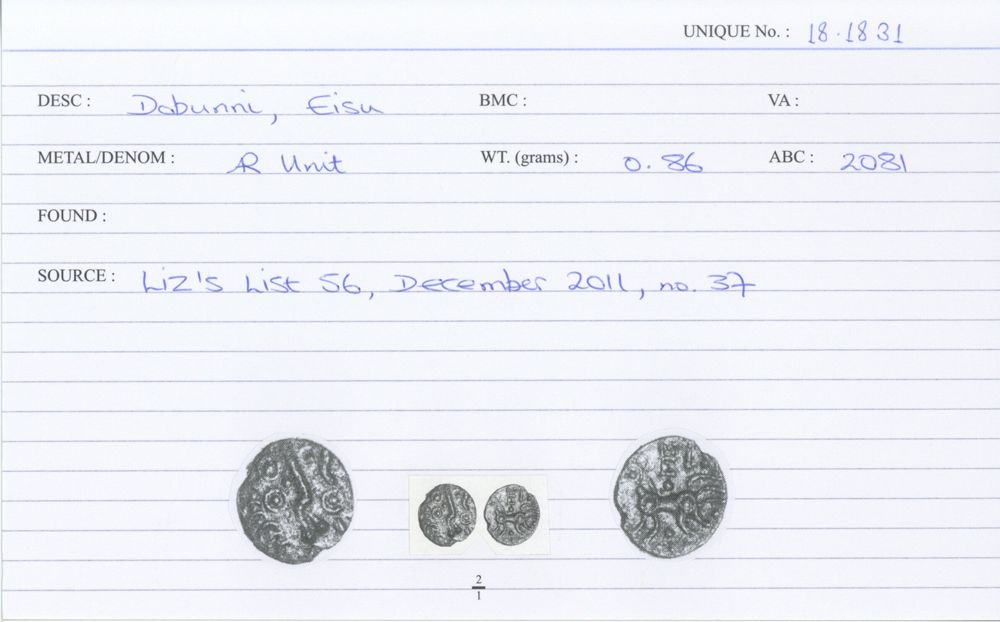 UNIQUE No. : 18.1831
DESC : Dobunni, Eisu BMC : VA :
METAL/DENOM : AR Unit WT. (grams) : 0.86 ABC : 2081
FOUND :
SOURCE : Liz's List 56, December 2011, no. 37
2
1